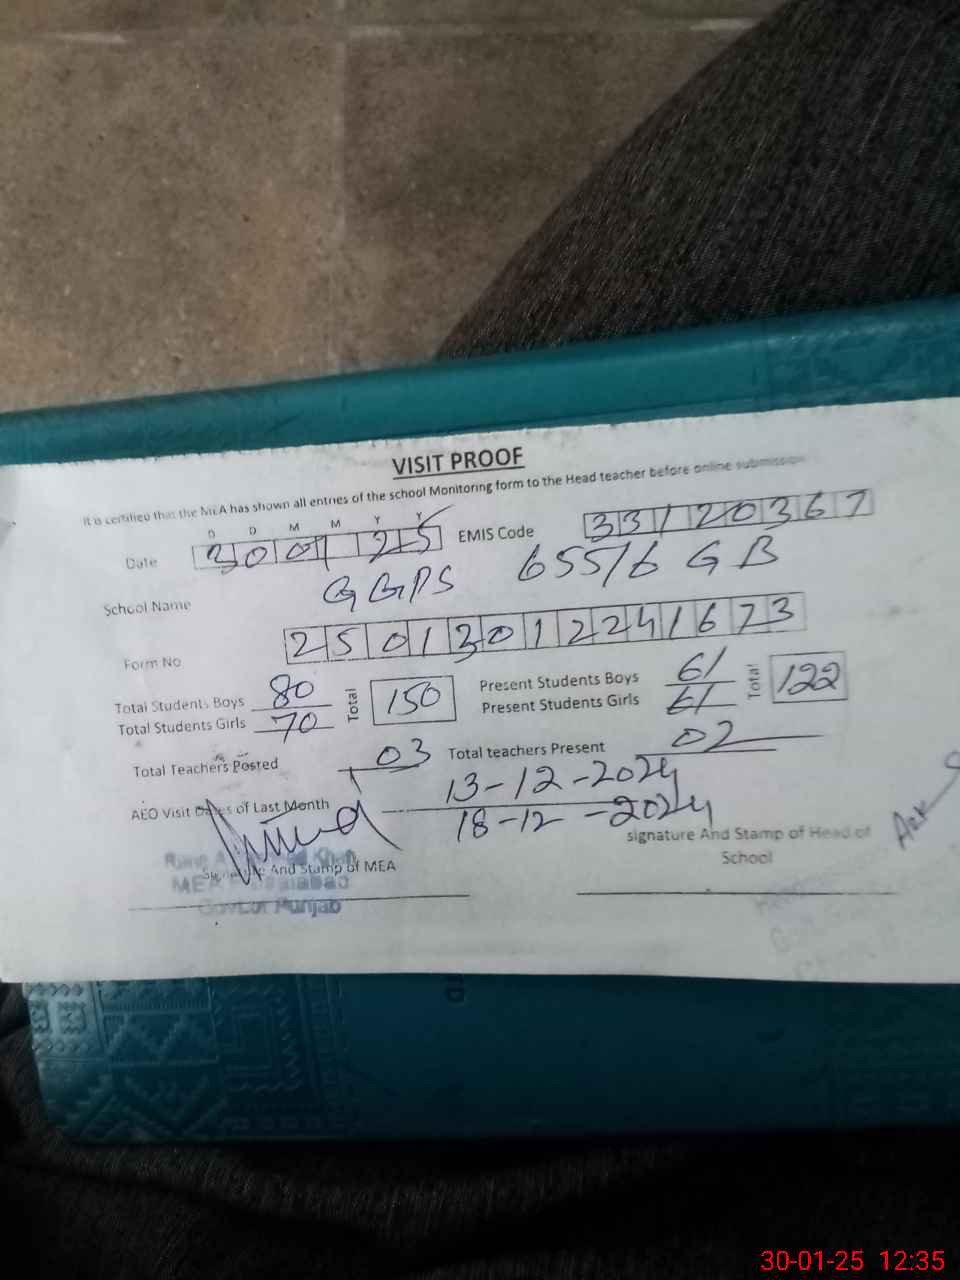 VISIT PROOF
It is certified that the MEA has shown all entries of the school Monitoring form to the Head teacher before online submission
D D M M Y Y
Date 30 01 25 EMIS Code 33120367
School Name GGPS 655/6 GB
Form No 25013012241673
Total Students Boys 80 Total 150 Present Students Boys 61 Total 122
Total Students Girls 70 Present Students Girls 61
Total Teachers Posted 03 Total teachers Present 02
AEO Visit Dates of Last Month 13-12-2024
18-12-2024
Signature And Stamp of MEA
signature And Stamp of Head of School
Khan
MEA Faisalabad
Govt.of Punjab
30-01-25 12:35